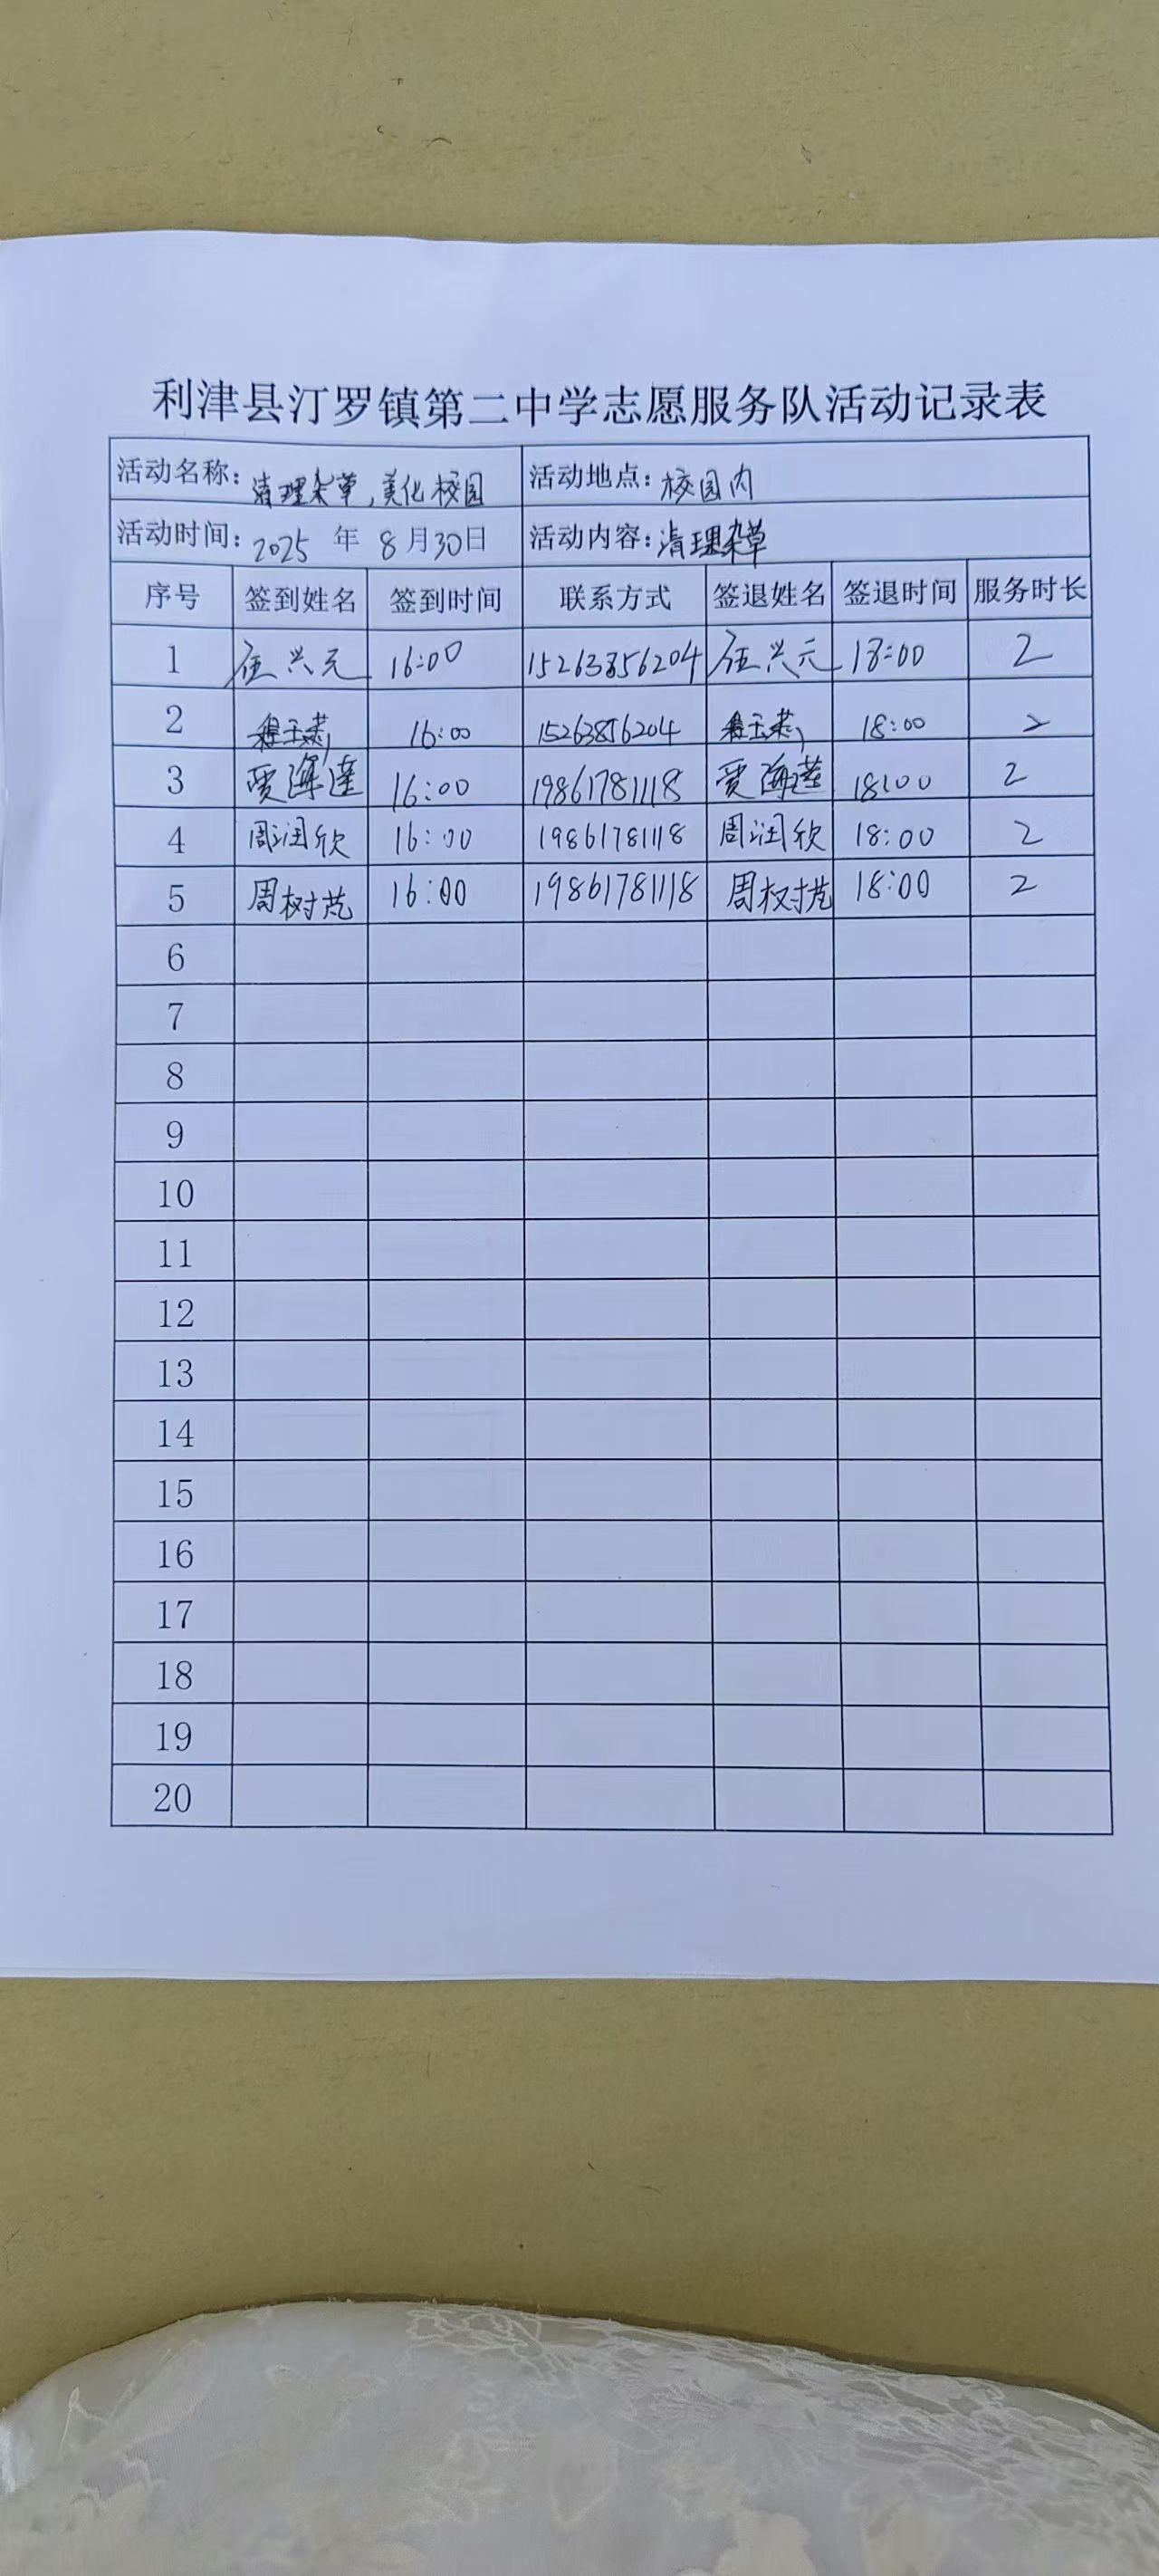 利津县汀罗镇第二中学志愿服务队活动记录表
活动名称: 清理杂草,美化校园 活动地点: 校园内
活动时间: 2025 年 8月30日 活动内容: 清理杂草
序号 签到姓名 签到时间 联系方式 签退姓名 签退时间 服务时长
1 兴元 16:00 15263856204 兴元 18:00 2
2 16:00 15263856204 18:00 2
3 贾海莲 16:00 19861781118 贾海莲 18:00 2
4 周润欣 16:00 19861781118 周润欣 18:00 2
5 周树范 16:00 19861781118 周树范 18:00 2
6
7
8
9
10
11
12
13
14
15
16
17
18
19
20